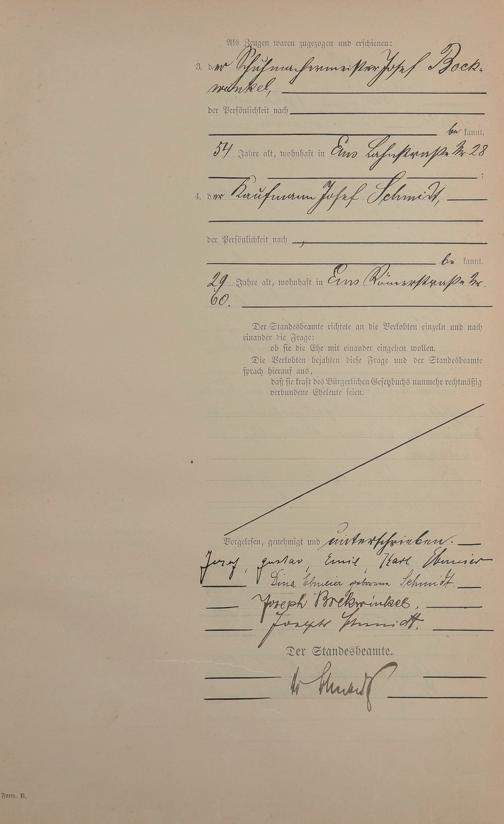 Als Zeugen waren zugezogen und erschienen:
3. der Schuhmachermeister Josef Bock-
winkel,
der Persönlichkeit nach
be kannt,
54 Jahre alt, wohnhaft in Ems Lahnstraße Nr 28
;
4. der Kaufmann Josef Schmidt,
der Persönlichkeit nach
be kannt,
29 Jahre alt, wohnhaft in Ems Römerstraße Nr.
60.
Der Standesbeamte richtete an die Verlobten einzeln und nach
einander die Frage:
ob sie die Ehe mit einander eingehen wollen.
Die Verlobten bejahten diese Frage und der Standesbeamte
sprach hierauf aus,
daß sie kraft des Bürgerlichen Gesetzbuchs nunmehr rechtmäßig
verbundene Eheleute seien.
Vorgelesen, genehmigt und unterschrieben.
Josef, Gustav, Emil, Karl Ebmeier
Ebmeier geborene Schmidt
Joseph Bockwinkel.
Joseph Schmidt.
Der Standesbeamte.
Form. B.